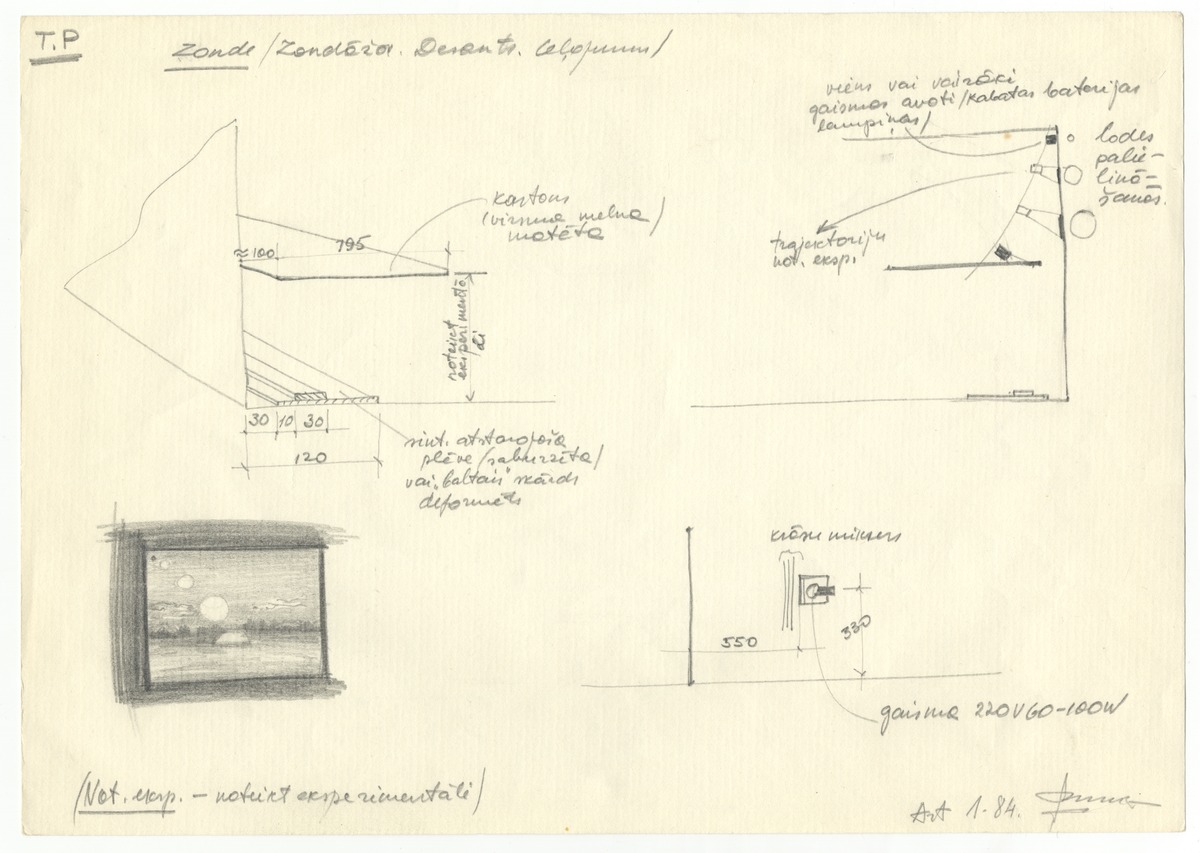 T.P
Zonde /Zondāža. Desants. Ceļojums/
viens vai vairāki
gaismas avoti /kabatas baterijas
lampiņas/
lodes
palie-
linā-
šanās.
kartons
(virsma melna/
matēta
≈100
795
trajektoriju
not. eksp.
noteikt
eksperimentā
li
30
10
30
120
sint. atstarojoša
plēve /saburzīta/
vai „baltais" skārds
deformēts
krāsu mikseris
550
330
gaisma 220V 60-100W
(Not. eksp. – noteikt eksperimentāli)
1.84.